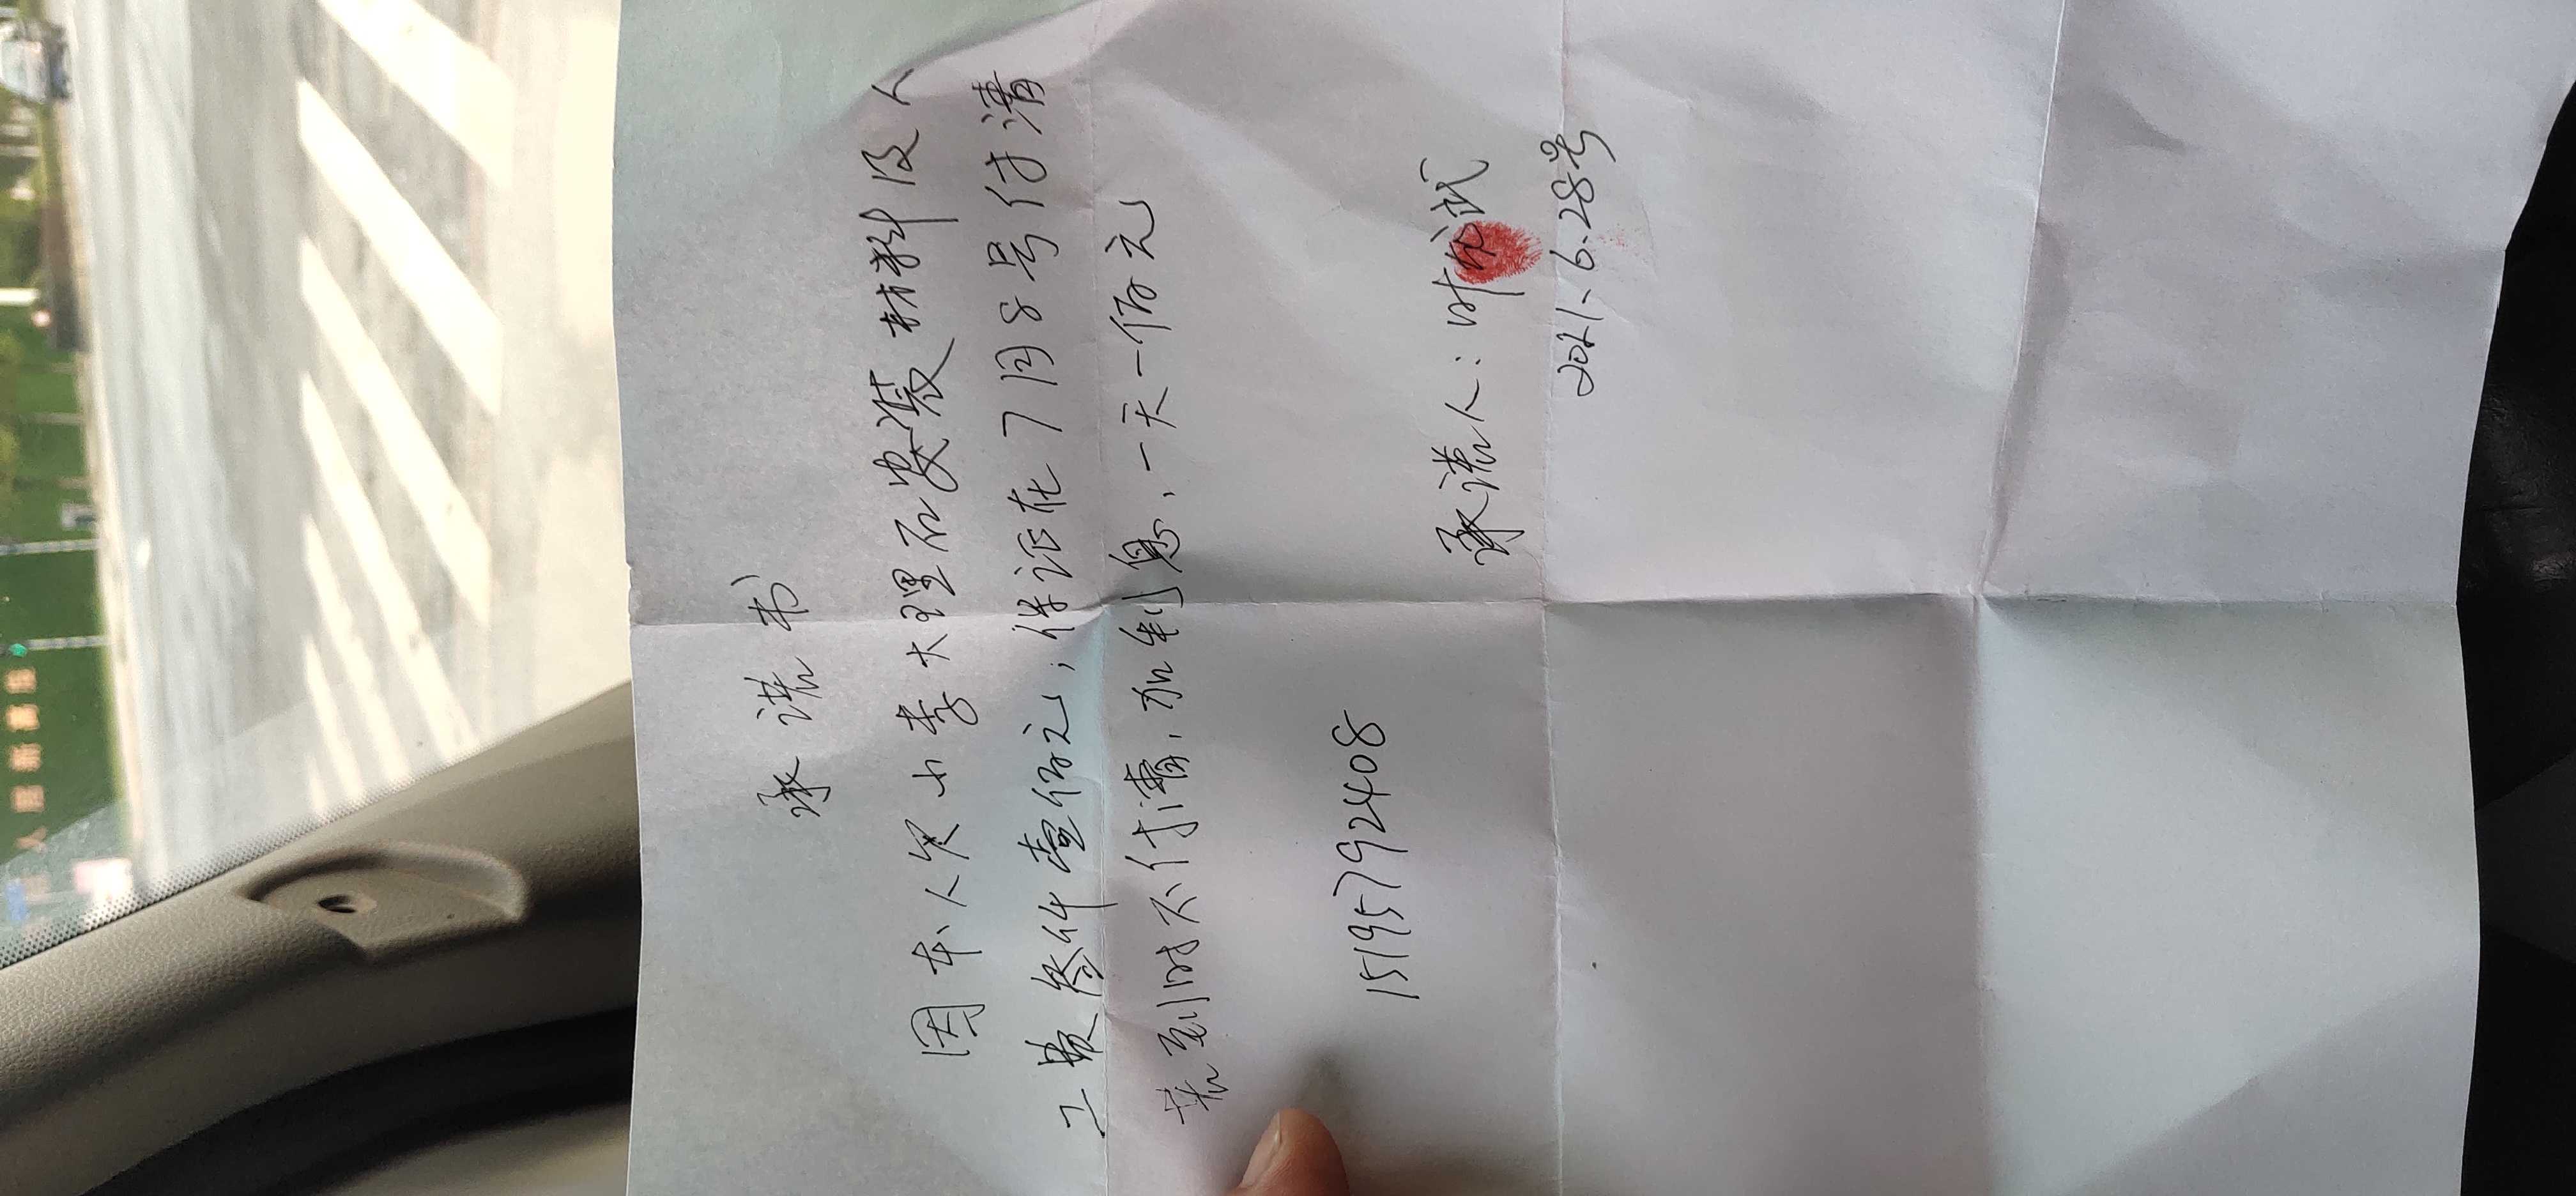 承诺书
因本人欠小李大理石安装材料及人
工费叁仟壹佰元；保证在7月8号付清
若到时不付清，加利息，一天一佰元
15195792408
承诺人：叶 试
2021、6.28号